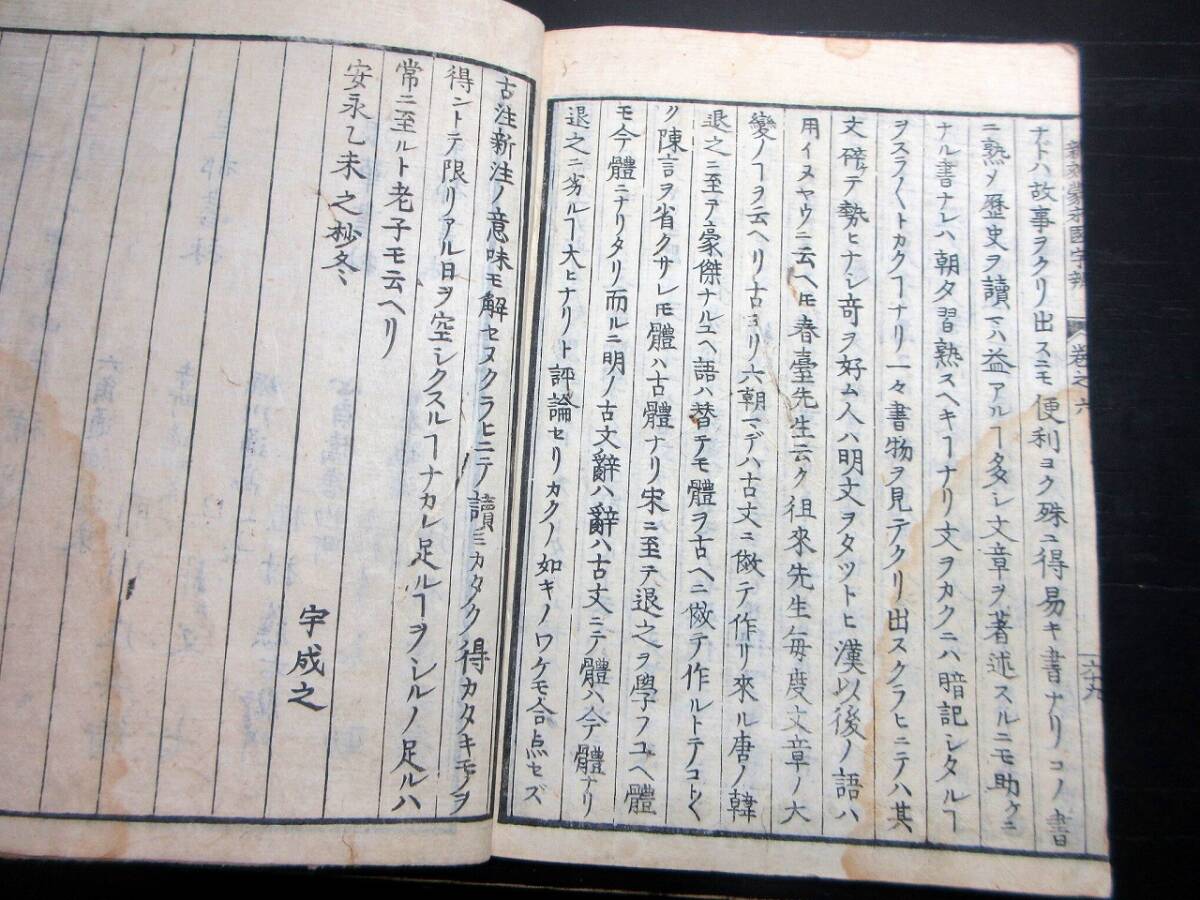 ナトハ故事ヲクリ出スニモ便利ヨク殊ニ得易キ書ナリコノ書
ニ熟〆歴史ヲ讀マハ益アルヿ多シ文章ヲ著述スルニモ助クニ
ナル書ナレハ朝夕習熟スヘキヿナリ文ヲカクニハ暗記シタルヿ
ヲスラ〱トカクヿナリ一々書物ヲ見テクリ出スクラヒニテハ其
文碎ケテ勢ヒナシ奇ヲ好ム人ハ明文ヲタツトヒ漢以後ノ語ハ
用イヌヤウニ云ヘ𪜈春臺先生云ク徂來先生毎度文章ノ大
變ノヿヲ云ヘリ古ヨリ六朝マデハ古文ニ倣テ作リ來ル唐ノ韓
退之ニ至テ豪傑ナルユヘ語ハ替テモ體ヲ古ヘニ倣テ作ルトテコト〱
ク陳言ヲ省クサレ𪜈體ハ古體ナリ宋ニ至テ退之ヲ學フユヘ體
モ今體ニナリタリ而ルニ明ノ古文辭ハ辭ハ古文ニテ體ハ今體ナリ
退之ニ劣ルヿ大ヒナリト評論セリカクノ如キノワケモ合点セズ
古注新注ノ意味モ解セヌクラヒニテ讀ミカタク得カタキモノヲ
得ントテ限リアル日ヲ空シクスルヿナカレ足ルヿヲシルノ足ルハ
常ニ至ルト老子モ云ヘリ
安永乙未之杪冬
宇成之
卷之六
六十九